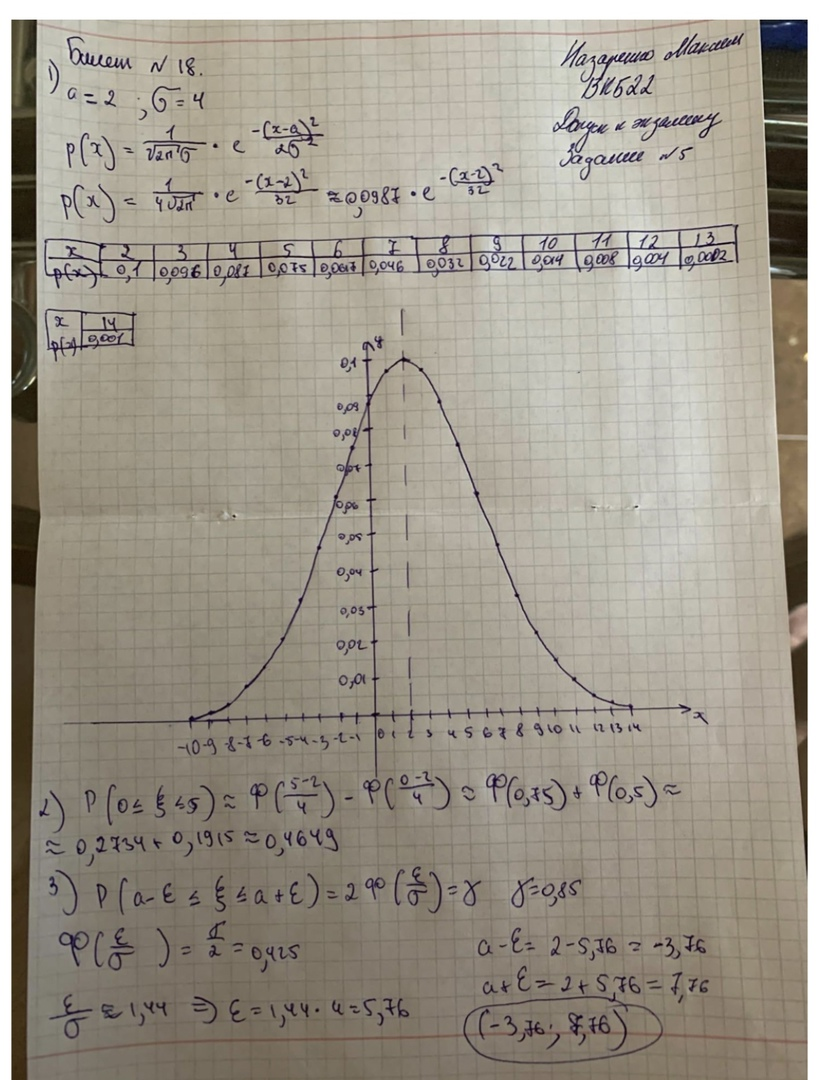 Билет N 18.
Назаренко Максим
ВКБ22
Допуск к экзамену
Задание №5
1) a = 2 ; σ = 4
p(x) = 1/(√2π σ) · e^(-(x-a)²/2σ²)
p(x) = 1/(4√2π) · e^(-(x-2)²/32) ≈ 0,0987 · e^(-(x-2)²/32)
x 2 3 4 5 6 7 8 9 10 11 12 13
p(x) 0,1 0,096 0,087 0,075 0,0017 0,046 0,032 0,022 0,014 0,008 0,004 0,0002
x 14
p(x) 0,001
y
0,1
0,09
0,08
0,07
0,06
0,05
0,04
0,03
0,02
0,01
-10 -9 -8 -7 -6 -5 -4 -3 -2 -1 0 1 2 3 4 5 6 7 8 9 10 11 12 13 14 x
2) P(0 ≤ ξ ≤ 5) ≈ Ф((5-2)/4) - Ф((0-2)/4) ≈ Ф(0,75) + Ф(0,5) ≈
≈ 0,2734 + 0,1915 ≈ 0,4649
3) P(a-ε ≤ ξ ≤ a+ε) = 2Ф(ε/σ) = γ γ = 0,85
Ф(ε/σ) = γ/2 = 0,425
ε/σ ≈ 1,44 ⇒ ε = 1,44 · 4 = 5,76
a-ε = 2-5,76 = -3,76
a+ε = 2+5,76 = 7,76
(-3,76; 7,76)